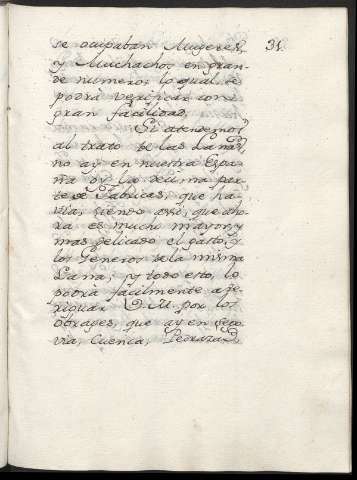 se ocupaban Mugeres, 31.
y Muchachos en gran-
de numero; lo qual, se
podrà verificar con
gran facilidad.
Si atendemos
al trato de las Lanas,
no ay en nuestra Espa-
ña oy la decima par-
te de Fabricas, que ha-
via; siendo assi, que aho-
ra es mucho mayor, y
mas delicado el gasto, y
los Generos de la misma
Lana; y todo esto, lo
podrà facilmente ave-
riguar V. M. por los
obrages, que ay en Sego-
via, Cuenca, Pedraza